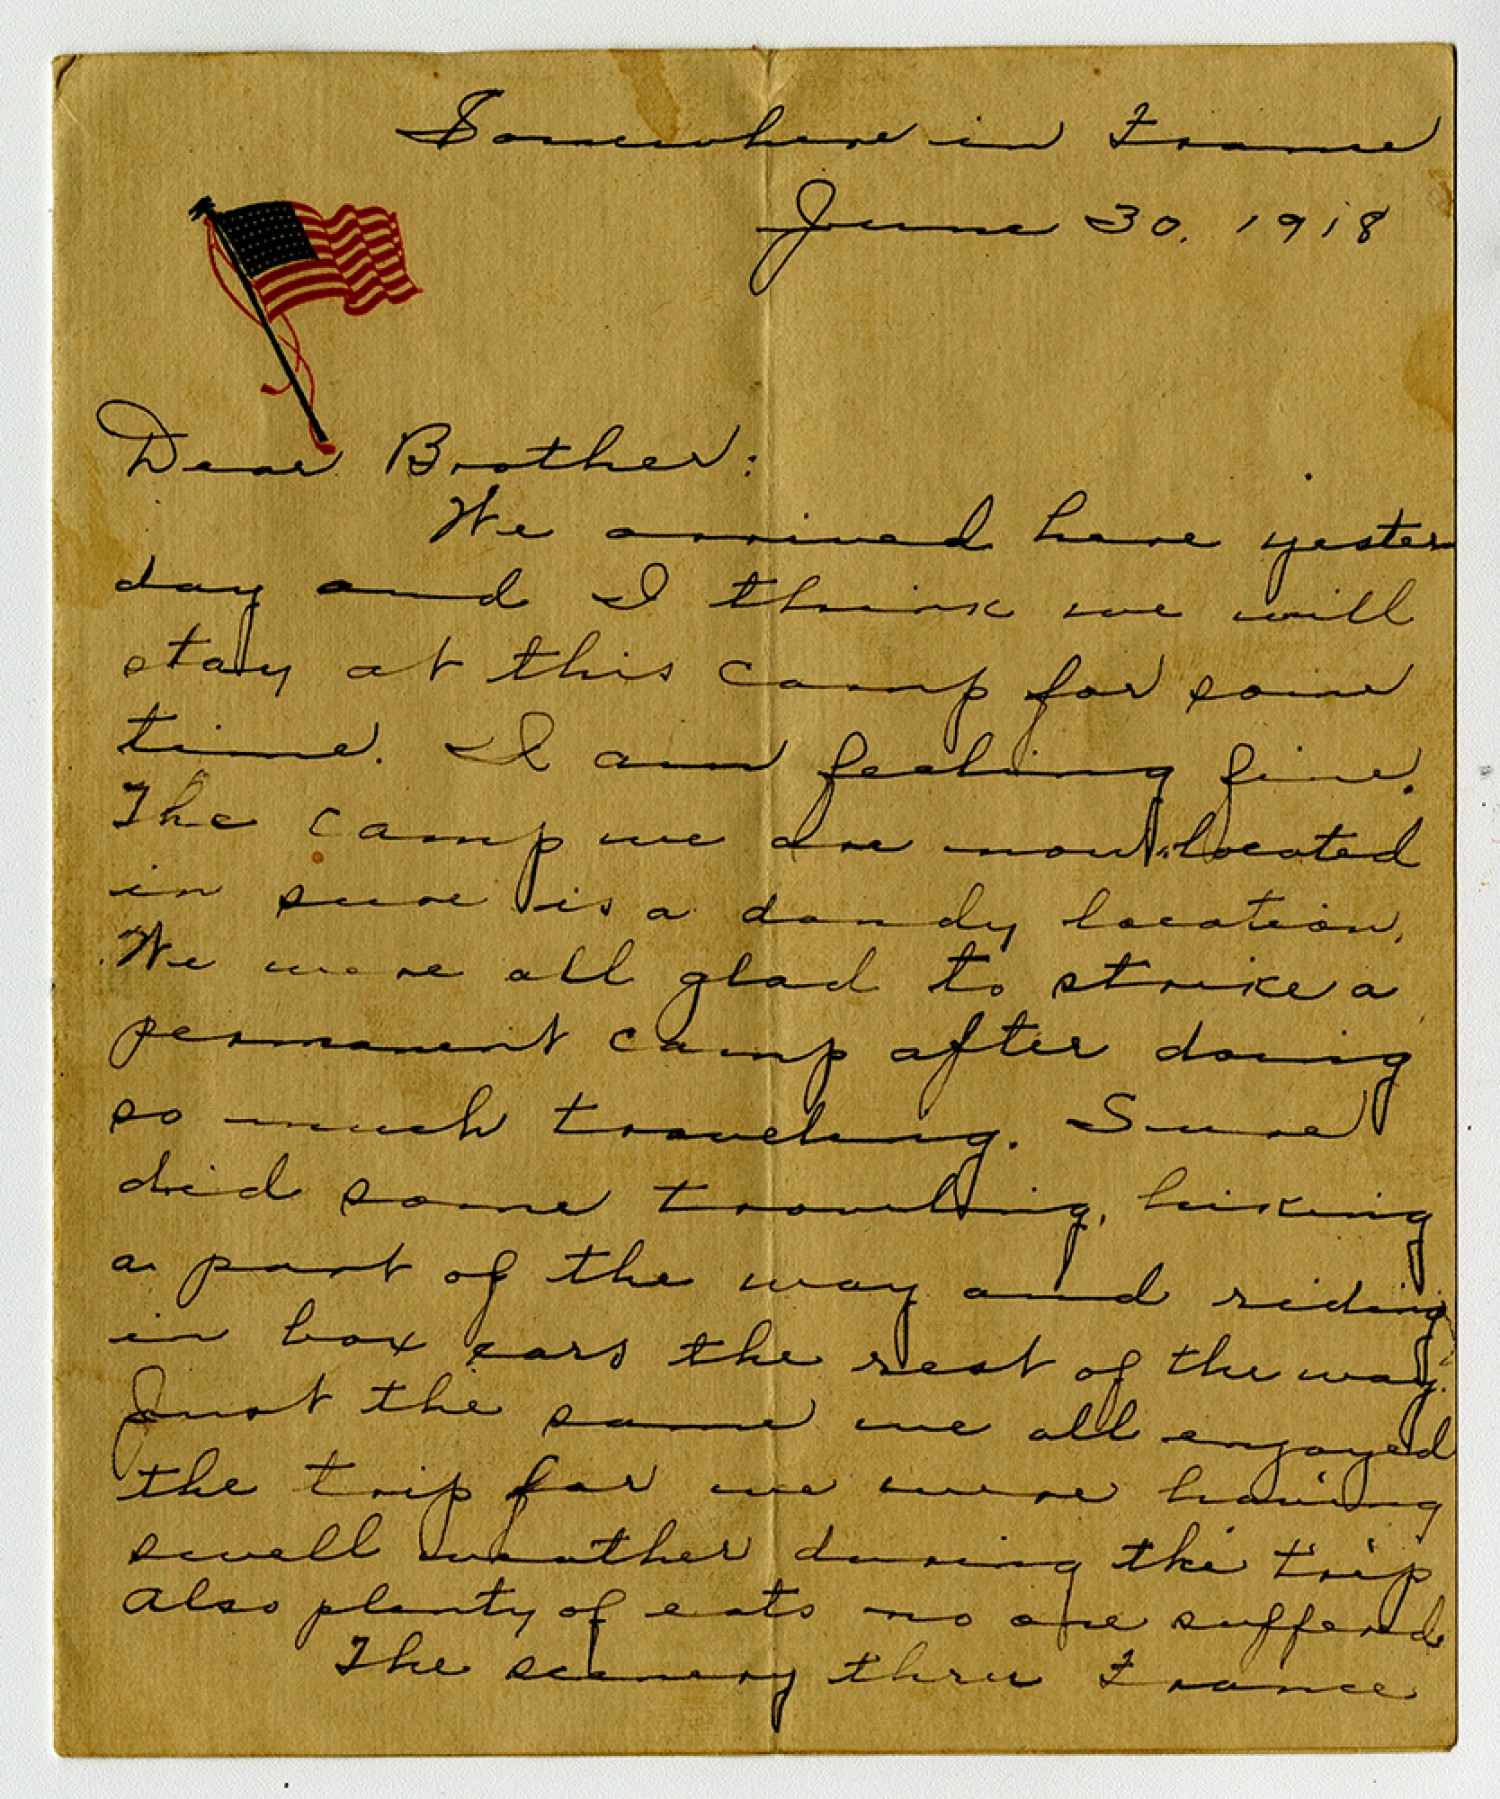 Somewhere in France
June 30, 1918
Dear Brother:
We arrived here yester
day and I think we will
stay at this camp for some
time. I am feeling fine.
The camp we are now located
in sure is a dandy location.
We were all glad to strike a
permanent camp after doing
so much traveling. Sure
did some traveling, hiking
a part of the way and riding
in box cars the rest of the way.
Just the same we all enjoyed
the trip for we were having
swell weather during the trip
also plenty of eats no one suffered
The scenery thru France